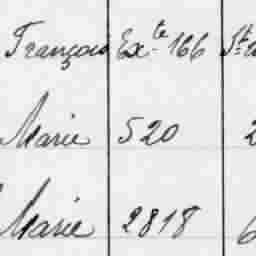 François Exte 166 St
Marie 520 2
Marie 2818 6